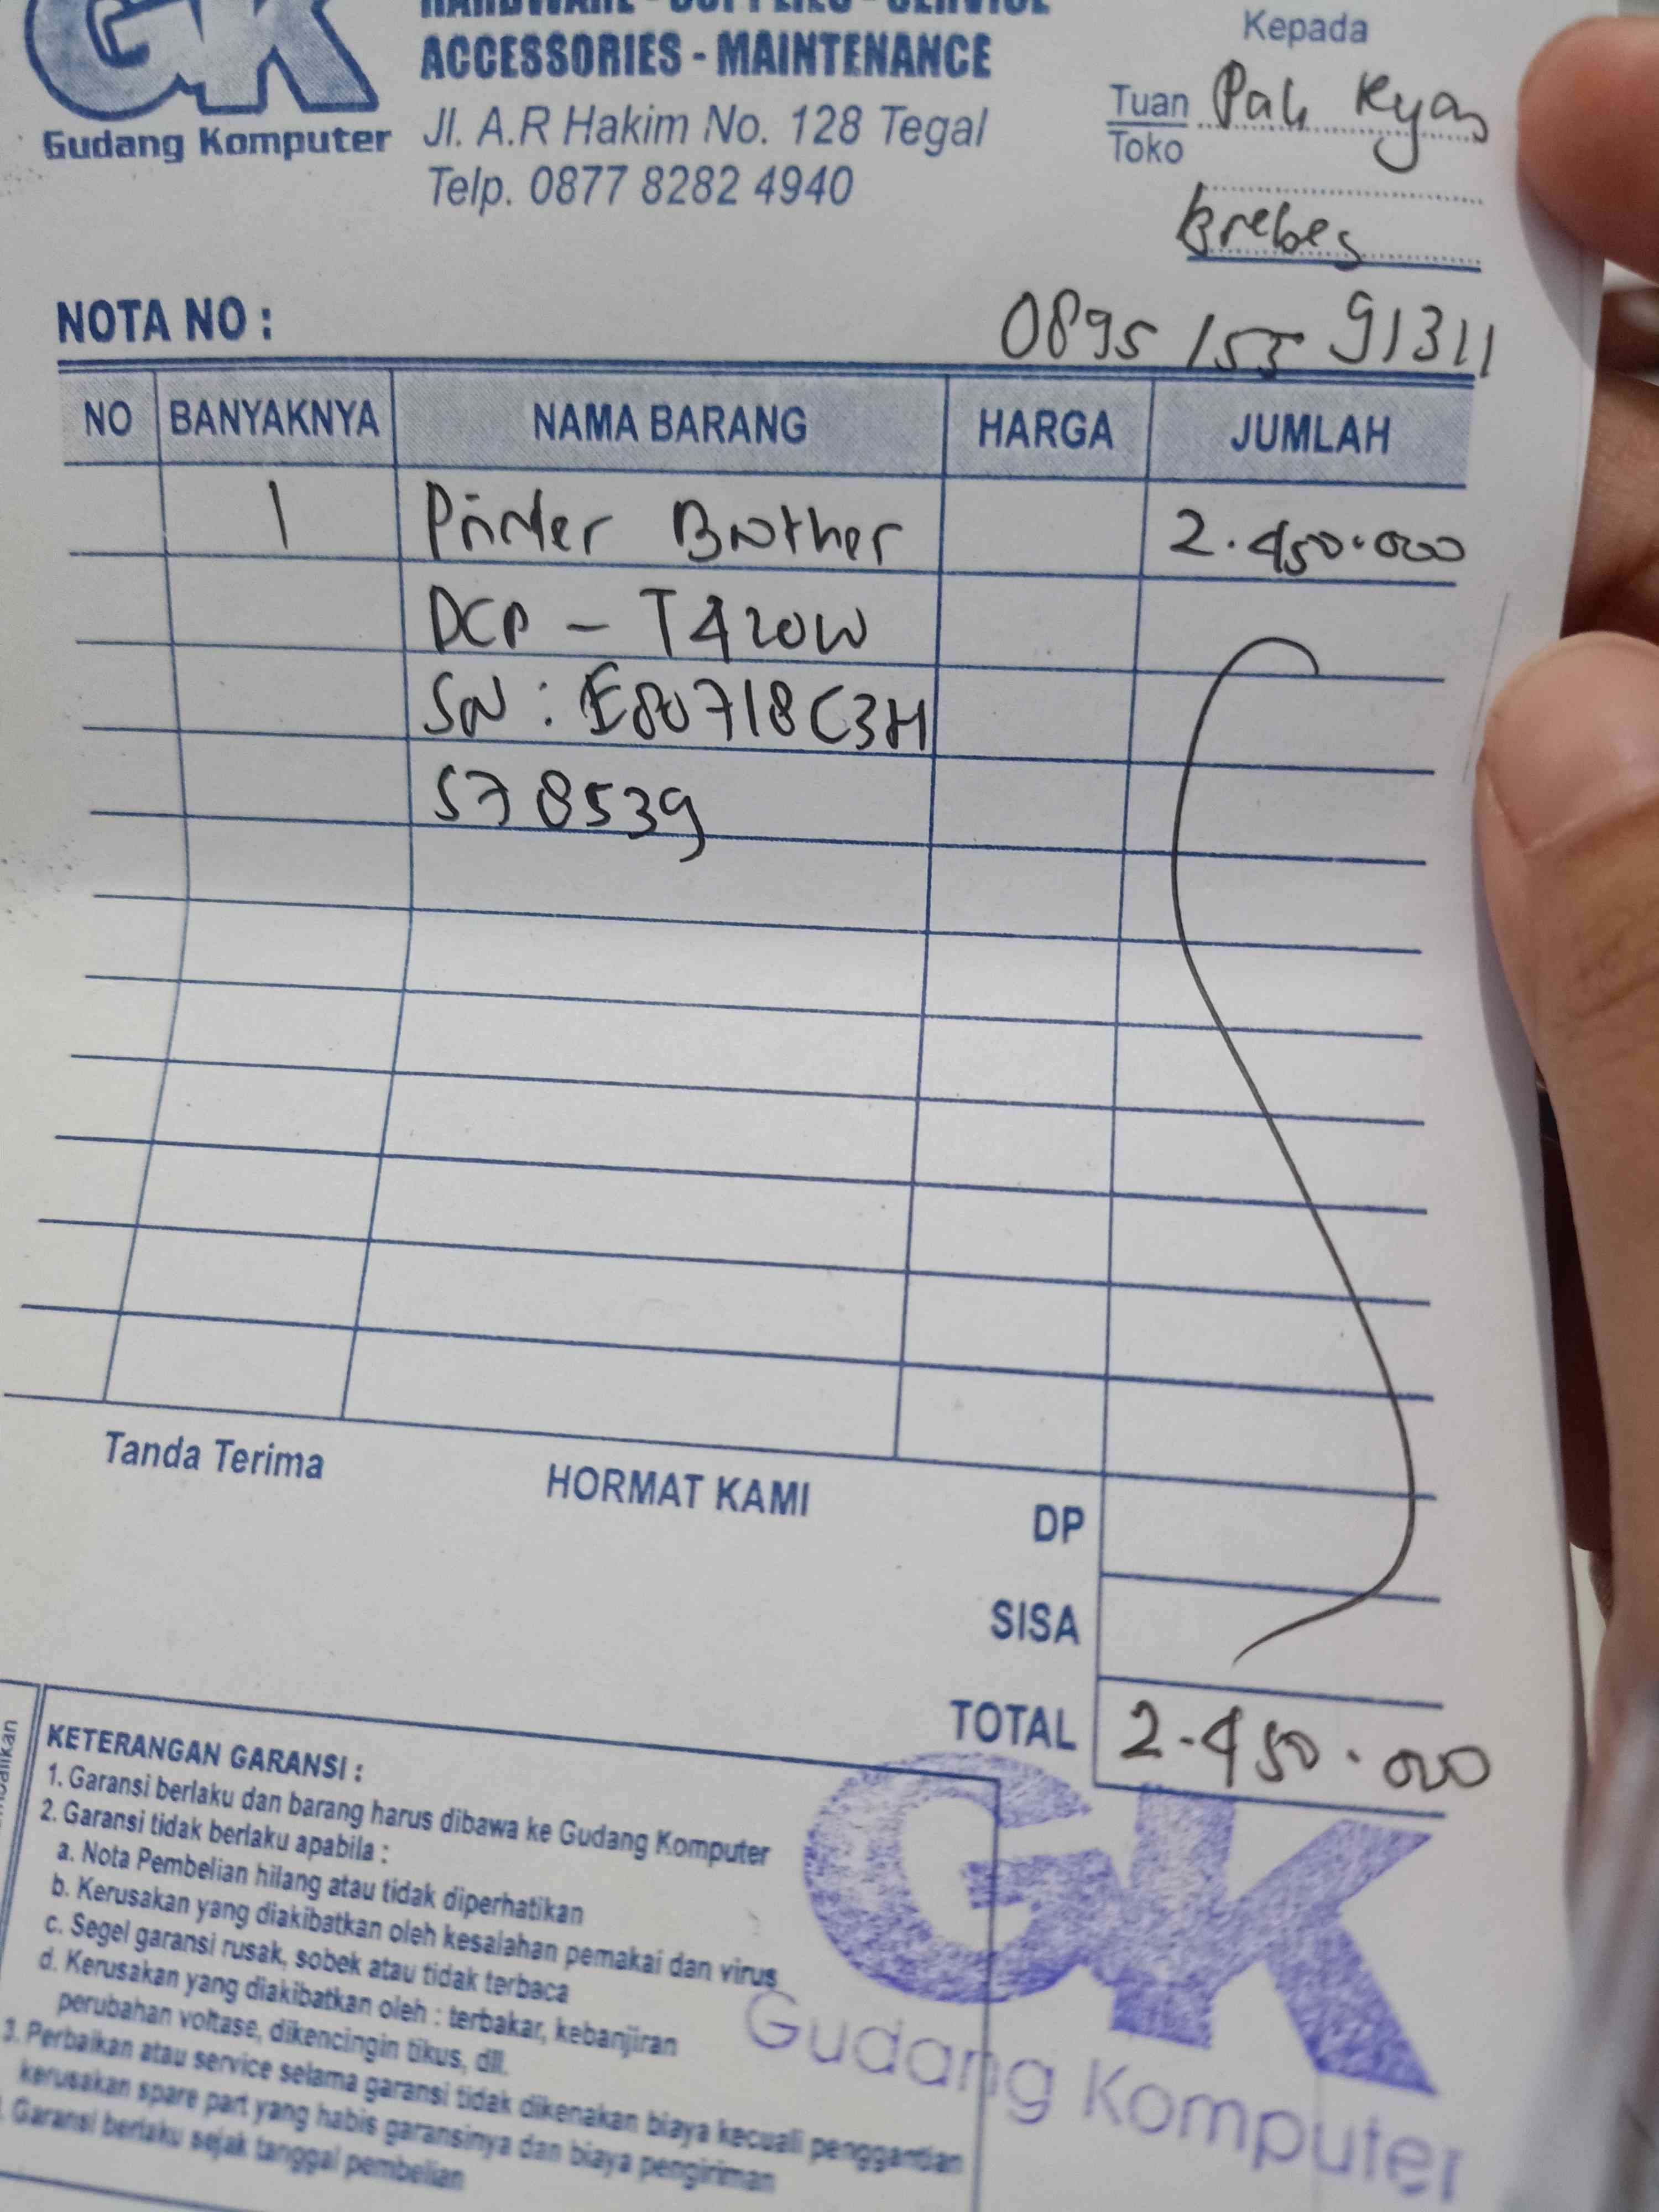 HARDWARE - SUPPLIES - SERVICE
ACCESSORIES - MAINTENANCE
Gudang Komputer
Jl. A.R Hakim No. 128 Tegal
Telp. 0877 8282 4940
Kepada
Tuan Pak Ryan
Toko
Brebes
NOTA NO :
0895 155 91311
NO BANYAKNYA NAMA BARANG HARGA JUMLAH
1 Printer Brother 2.450.000
DCP - T420W
SN : E80718C3H
578539
Tanda Terima
HORMAT KAMI
DP
SISA
TOTAL 2.450.000
KETERANGAN GARANSI :
1. Garansi berlaku dan barang harus dibawa ke Gudang Komputer
2. Garansi tidak berlaku apabila :
a. Nota Pembelian hilang atau tidak diperhatikan
b. Kerusakan yang diakibatkan oleh kesalahan pemakai dan virus
c. Segel garansi rusak, sobek atau tidak terbaca
d. Kerusakan yang diakibatkan oleh : terbakar, kebanjiran
perubahan voltase, dikencingin tikus, dll.
3. Perbaikan atau service selama garansi tidak dikenakan biaya kecuali penggantian
kerusakan spare part yang habis garansinya dan biaya pengiriman
. Garansi berlaku sejak tanggal pembelian
GK
Gudang Komputer